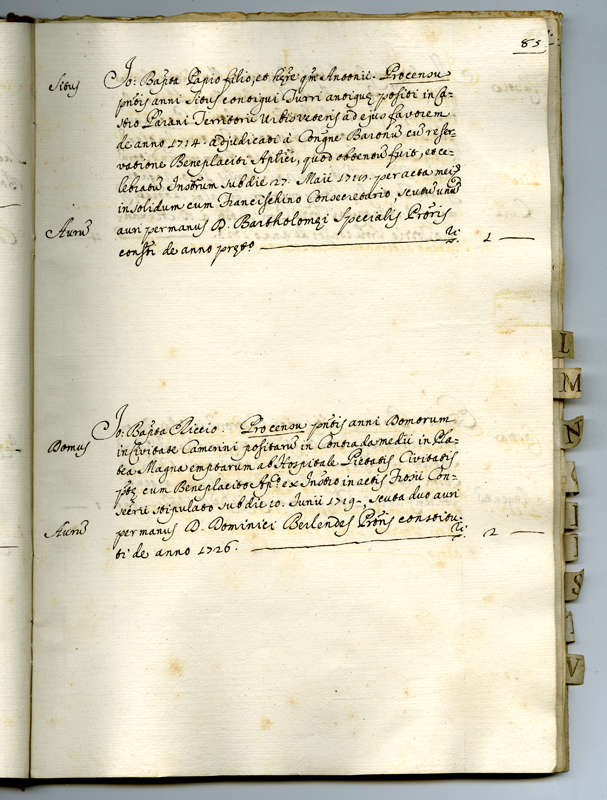 85
Situs
Jo: Bapta Papio filio, et hẹre qm Antonii. Pro censu
pntis anni Situs contigui Turri antiquę positi in Ca-
stro Parani Territorii Urbisveteris ad ejus favorem
de anno 1714. adjudicati à Congne Baronũ cũ reser-
vatione Beneplaciti Aplici, quod obtentũ fuit, et ce-
lebratũ Instrum sub die 27. Maii 1719. per acta mei
in solidum cum Franceschino Consecretario, scutũ unũ
Aurũ
auri per manus D. Bartholomęi Specialis Proris
constti de anno pręto 1 —
Domus
Jo: Bapta Riccio. Pro censu pntis anni Domorum
in Civitate Camerini positarũ in Contrada medii in Pla-
tea Magna emptarum ab Hospitale Pietatis Civitatis
ptę cum Beneplacito Apco ex Instro in actis Frosii Con-
scerii stipulato sub die 20. Junii 1719., scuta duo auri
Aurũ
per manus D. Dominici Berlendes Proris constitu-
ti de anno 1726. 2 —
L
M
N
S
I
V